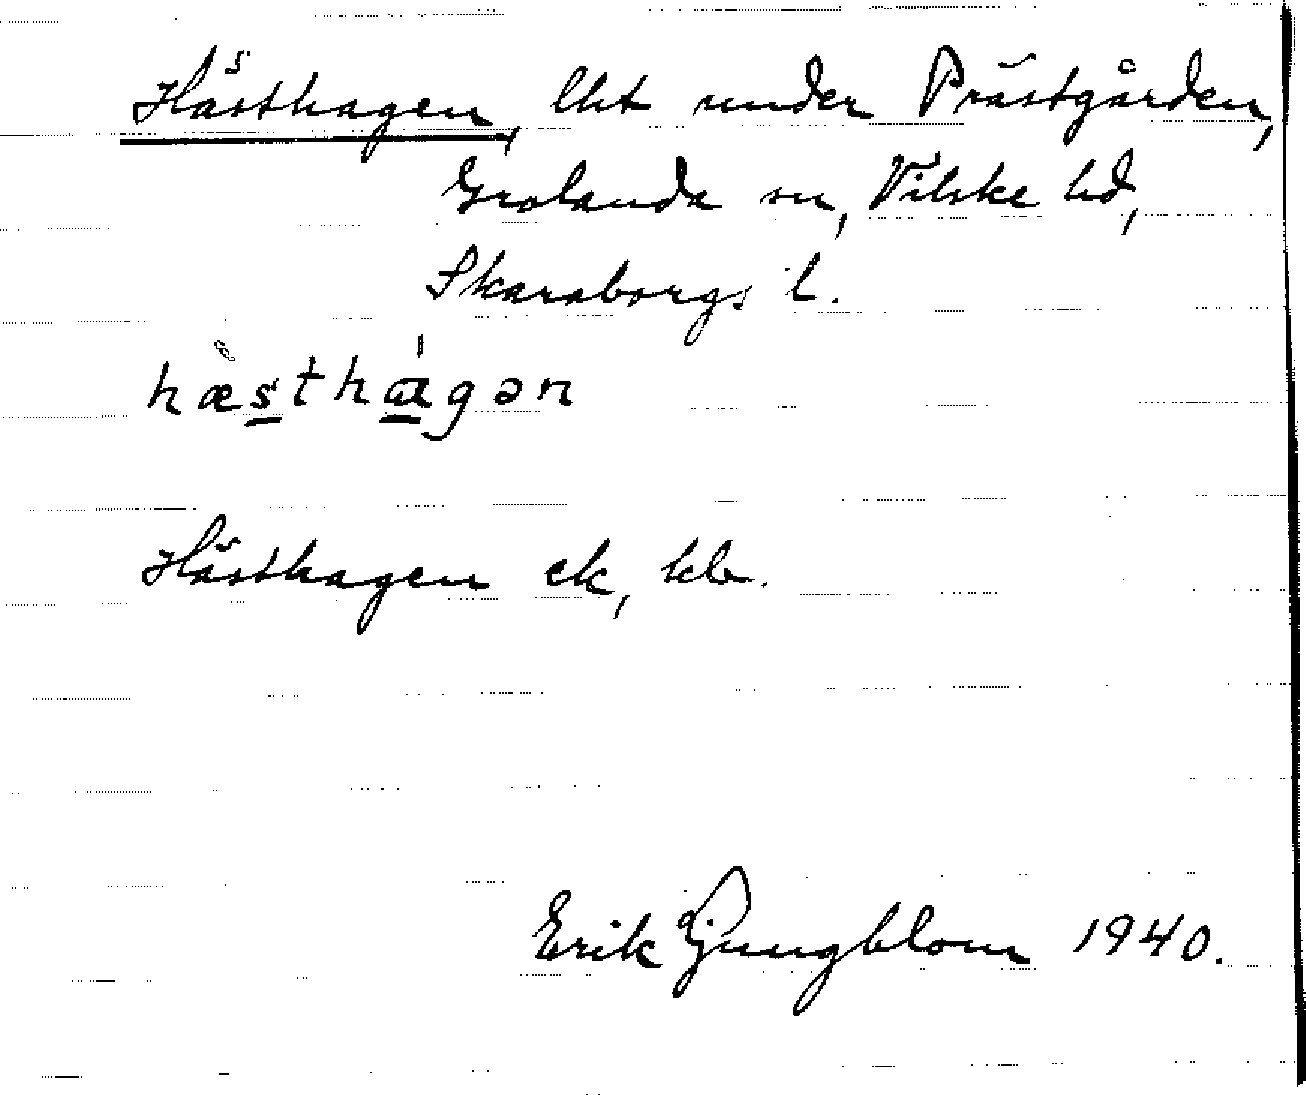 Hästhagen, lht under Prästgården,
Grolanda sn, Vilske hd,
Skaraborgs l.
hæsthagən
Hästhagen ek, kb.
Erik Ljungblom 1940.